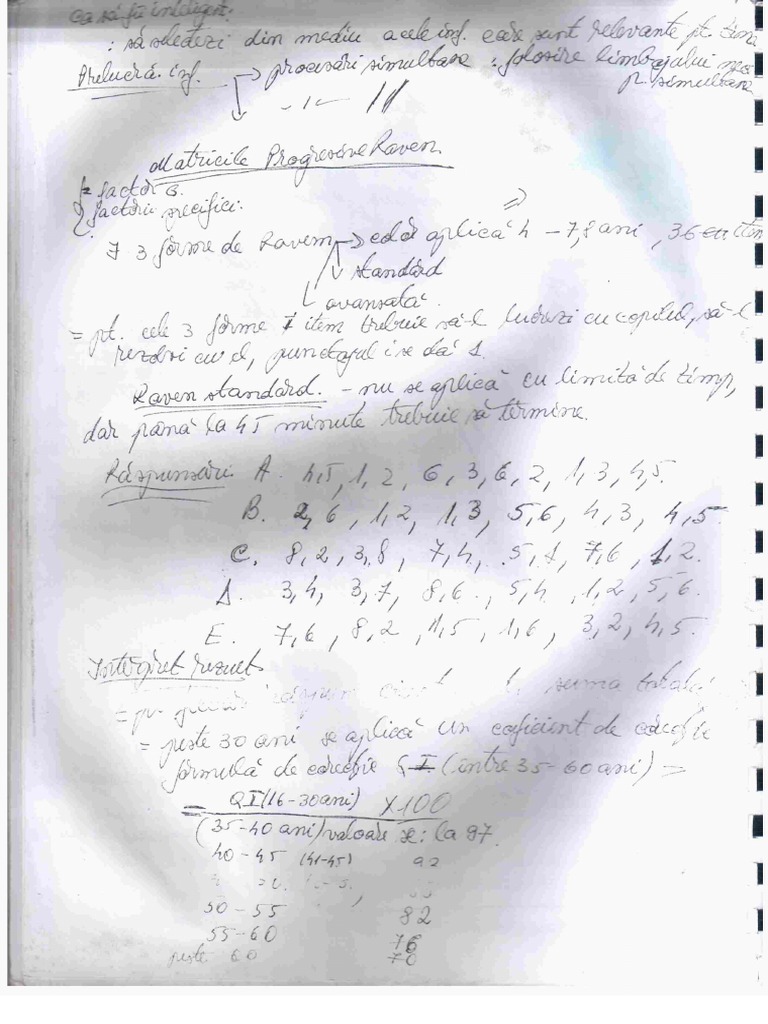 Ca să fii inteligent.
: să selectezi din mediu acele inf. care sunt relevante pt.
Prelucră. inf. → procesări simultane : folosire limbajului
p. simultane
- 1 - 11
Matricile Progresive Raven.
factor G.
factorii specifici.
7 3 forme de Raven → aplică 4 - 7,8 ani, 36
standard
avansată.
= pt. cele 3 forme 1 item trebuie să-l lucrezi cu copilul, să-l
rezolvi cu el, punctajul i se dă 1.
Raven standard. - nu se aplică cu limită de timp,
dar până la 45 minute trebuie să termine.
Răspunsuri. A. 4,5, 1, 2, 6, 3, 6, 2, 1, 3, 4, 5.
B. 2, 6, 1, 2, 1, 3, 5, 6, 4, 3, 4, 5.
C. 8, 2, 3, 8, 7, 4, 5, 1, 7, 6, 1, 2.
D. 3, 4, 3, 7, 8, 6, 5, 4, 1, 2, 5, 6.
E. 7, 6, 8, 2, 1, 5, 1, 6, 3, 2, 4, 5.
Interpret rezult.
= pt. suma
= peste 30 ani se aplică un coeficient de corecție
formulă de corecție QI (între 35-60 ani) =
= QI (16-30 ani) x 100
(35-40 ani) valoare la 97
40-45 (41-45) 92
50-55 82
55-60 76
peste 60 70